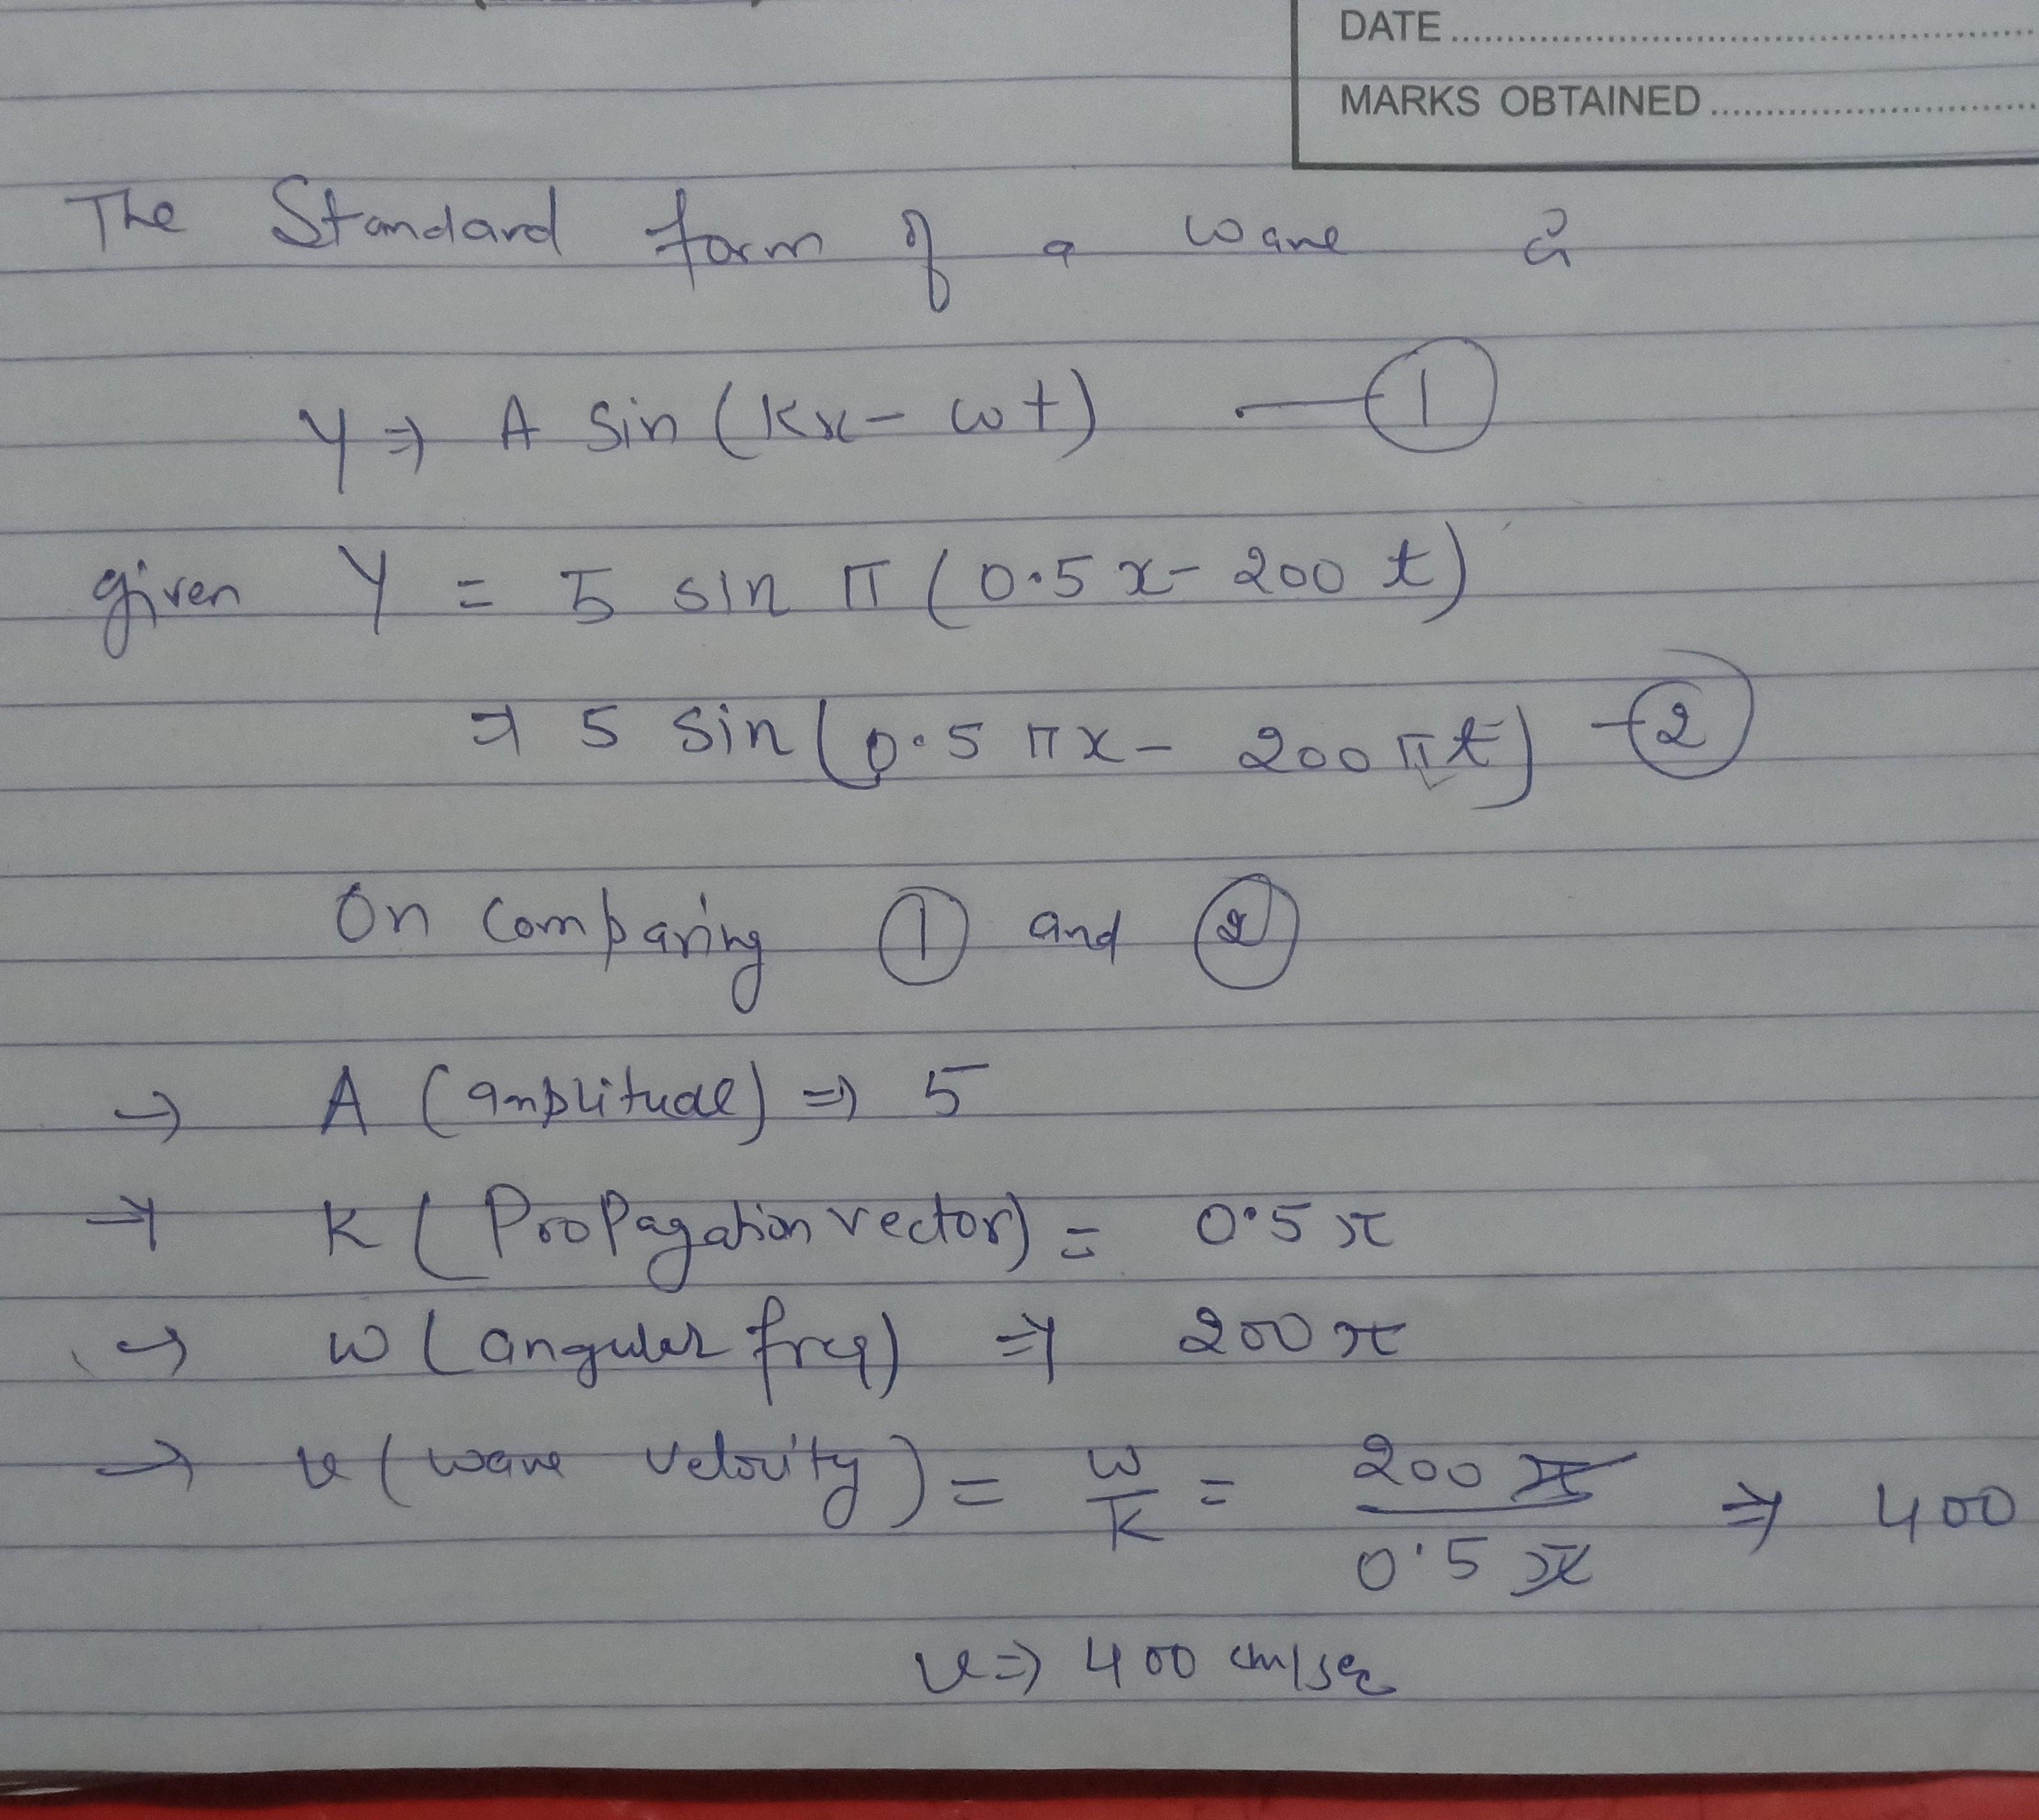 DATE
MARKS OBTAINED
The Standard form of a wave is
y ⇒ A Sin (Kx - ωt) — ①
given Y = 5 sin π (0.5 x - 200 t)
⇒ 5 sin (0.5 πx - 200 πt) - ②
On Comparing ① and ②
→ A (amplitude) ⇒ 5
→ K (Propagation vector) = 0.5 π
→ ω (angular freq) ⇒ 200 π
→ v (wave velocity) = ω/K = 200 π/0.5 π ⇒ 400
v ⇒ 400 cm/sec